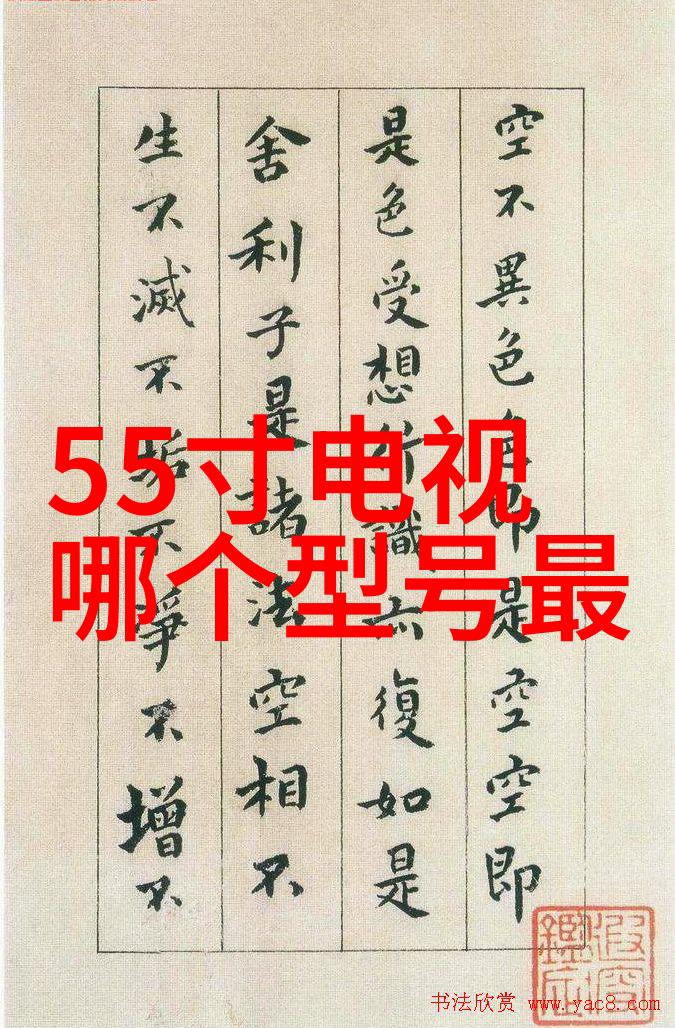 空不異色色即是空空即
是色受想行識亦復如是
舍利子是諸法空相不
生不滅不垢不淨不增不
55寸电视
哪个型号最
书法欣赏 www.yac8.com